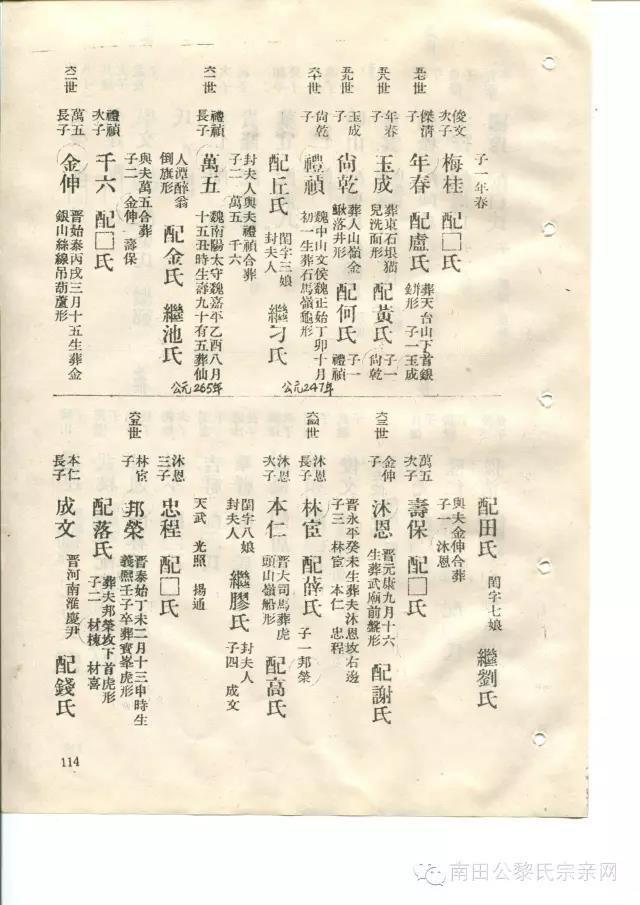 子一年春
俊文
次子
梅桂 配□氏
五七世
傑清
子
年春 配盧氏
葬天台山下首銀
缾形 子一玉成
五八世
年春
子
玉成
葬東石垠猫
兒洗面形
配黃氏
子一
尙乾
五九世
玉成
子
尙乾
葬人山嶺金
鰍落井形
配何氏
子一
禮禎
六十世
尙乾
子
禮禎
魏中山文侯魏正始丁卯十月
初一生葬石馬嶺龜形
公元247年
配丘氏
閏字三娘
封夫人
繼刁氏
封夫人與夫禮禎合葬
子二 萬五 千六
六一世
禮禎
長子
萬五
魏南陽太守魏嘉平乙酉八月
十五丑時生壽九十有五葬仙
公元265年
人潭醉翁
倒旗形
配金氏 繼池氏
與夫萬五合葬
子二 金伸 壽保
禮禎
次子
千六 配□氏
六二世
萬五
長子
金伸
晋始泰丙戌三月十五生葬金
銀山絲線吊葫蘆形
配田氏
閏字七娘
繼劉氏
與夫金伸合葬
子一 沐恩
萬五
次子
壽保 配□氏
六三世
金伸
子
沐恩
晋元康九月十六
生葬武廟前盤形
配謝氏
晋永平癸未生葬夫沐恩攻右邊
子三 林宦 本仁 忠程
六四世
沐恩
長子
林宦 配薛氏
子一邦榮
沐恩
次子
本仁
晋大司馬葬虎
頭山嶺船形
配高氏
閏字八娘
封夫人
繼膠氏
封夫人
子四 成文
天武 光照 揚通
沐恩
三子
忠程 配□氏
六五世
林宦
子
邦榮
晋泰始丁未二月十三申時生
義熙壬子卒葬賓峯虎形
配落氏
葬夫邦榮攻下首虎形
子二 材棟 材喜
本仁
長子
成文
晋河南淮慶尹
配錢氏
114
南田公黎氏宗亲网